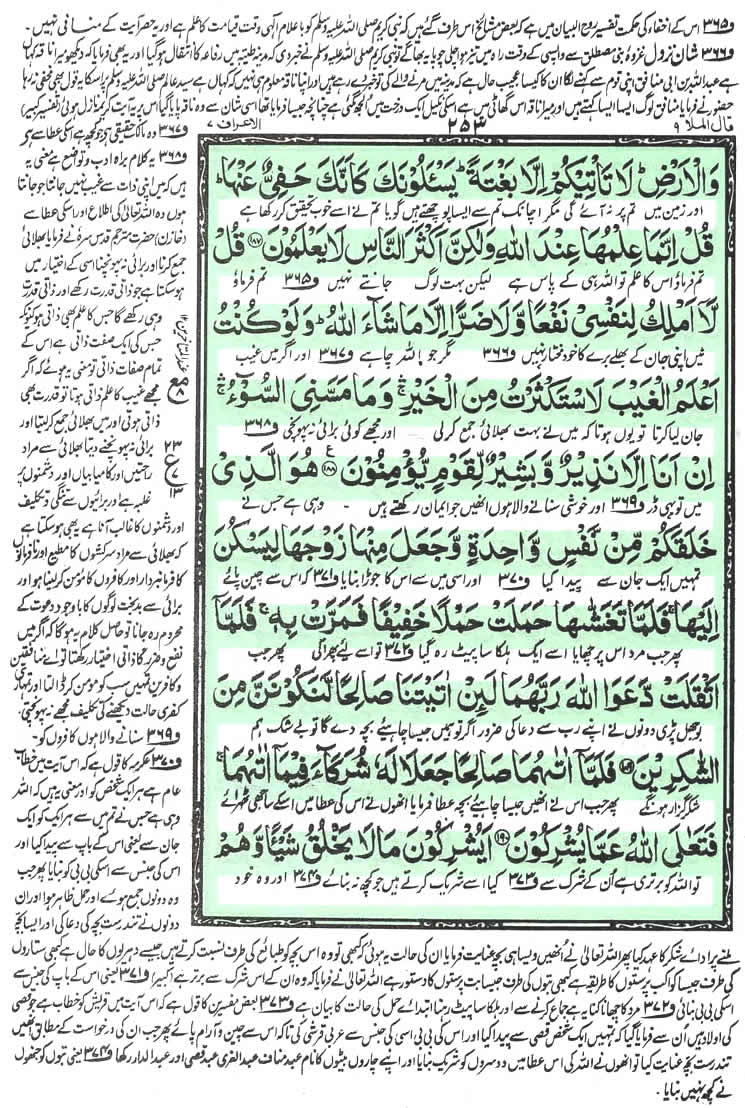 و۳۶۵ اس کے اخفاء کی حکمت تفسیر روح البیان میں ہے کہ بعض مشائخ اس طرف گئے ہیں کہ نبی کریم صلی اللہ علیہ وسلم کو باعلام الٰہی وقت قیامت کا علم ہے اور یہ حصر آیت کے منافی نہیں۔
و۳۶۶ شان نزول غزوۂ بنی مصطلق سے واپسی کے وقت راہ میں تیز ہوا چلی چوپائے بھاگے تو نبی کریم صلی اللہ علیہ وسلم نے خبر دی کہ مدینہ طیبہ میں رفاعہ کا انتقال ہوگیا اور یہ بھی فرمایا کہ دیکھو میرا ناقہ کہاں
ہے عبداللہ بن ابی منافق اپنی قوم سے کہنے لگا ان کا کیسا عجیب حال ہے کہ مدینہ میں مرنے والے کی تو خبر دے رہے ہیں اور اپنا ناقہ معلوم ہی نہیں کہ کہاں ہے سید عالم صلی اللہ علیہ وسلم پر اسکا یہ قول بھی مخفی نہ رہا
حضور نے فرمایا منافق لوگ ایسا ایسا کہتے ہیں اور میرا ناقہ اس گھاٹی میں ہے اسکی نکیل ایک درخت میں الجھ گئی ہے چنانچہ جیسا فرمایا تھا اسی شان سے وہ ناقہ پایا گیا اس پر یہ آیت کریمہ نازل ہوئی (تفسیر کبیر)
قال الملا ۹
۲۵۳
الاعراف ۷
وَالْاَرْضِ ؕ لَا تَاْتِیْكُمْ اِلَّا بَغْتَةً ؕ یَسْـَٔلُوْنَكَ كَاَنَّكَ حَفِیٌّ عَنْهَا ؕ
اور زمین میں تم پر نہ آئے گی مگر اچانک تم سے ایسا پوچھتے ہیں گویا تم نے اسے خوب تحقیق کر رکھا ہے
قُلْ اِنَّمَا عِلْمُهَا عِنْدَ اللّٰهِ وَلٰكِنَّ اَكْثَرَ النَّاسِ لَا یَعْلَمُوْنَ ﴿۱۸۷﴾ قُلْ
تم فرماؤ اس کا علم تو اللہ ہی کے پاس ہے لیکن بہت لوگ جانتے نہیں و۳۶۵ تم فرماؤ
لَّاۤ اَمْلِكُ لِنَفْسِیْ نَفْعًا وَّلَا ضَرًّا اِلَّا مَا شَآءَ اللّٰهُ ؕ وَلَوْ كُنْتُ
میں اپنی جان کے بھلے برے کا خود مختار نہیں و۳۶۶ مگر جو اللہ چاہے و۳۶۷ اور اگر میں غیب
اَعْلَمُ الْغَیْبَ لَاسْتَكْثَرْتُ مِنَ الْخَیْرِ ۛۚ وَمَا مَسَّنِیَ السُّوْٓءُ ۛۚ
جان لیا کرتا تو یوں ہوتا کہ میں نے بہت بھلائی جمع کر لی اور مجھے کوئی برائی نہ پہونچی و۳۶۸
اِنْ اَنَا اِلَّا نَذِیْرٌ وَّبَشِیْرٌ لِّقَوْمٍ یُّؤْمِنُوْنَ ﴿۱۸۸﴾ ع هُوَ الَّذِیْ
میں تو یہی ڈر و۳۶۹ اور خوشی سنانے والا ہوں انھیں جو ایمان رکھتے ہیں - وہی ہے جس نے
خَلَقَكُمْ مِّنْ نَّفْسٍ وَّاحِدَةٍ وَّجَعَلَ مِنْهَا زَوْجَهَا لِیَسْكُنَ
تمہیں ایک جان سے پیدا کیا و۳۷۰ اور اسی میں سے اس کا جوڑا بنایا و۳۷۱ کہ اس سے چین پائے
اِلَیْهَا ۚ فَلَمَّا تَغَشّٰىهَا حَمَلَتْ حَمْلًا خَفِیْفًا فَمَرَّتْ بِهٖ ۚ فَلَمَّاۤ
پھر جب مرد اس پر چھایا اسے ایک ہلکا سا پیٹ رہ گیا و۳۷۲ تو اسے لئے پھرا کی پھر جب
اَثْقَلَتْ دَّعَوَا اللّٰهَ رَبَّهُمَا لَىِٕنْ اٰتَیْتَنَا صَالِحًا لَّنَكُوْنَنَّ مِنَ
بوجھل پڑی دونوں نے اپنے رب سے دعا کی ضرور اگر تو ہمیں جیسا چاہیے بچہ دے گا تو بے شک ہم
الشّٰكِرِیْنَ ﴿۱۸۹﴾ فَلَمَّاۤ اٰتٰىهُمَا صَالِحًا جَعَلَا لَهٗ شُرَكَآءَ فِیْمَاۤ اٰتٰىهُمَا ۚ
شکر گزار ہونگے پھر جب اس نے انھیں جیسا چاہیے بچہ عطا فرمایا انھوں نے اس کی عطا میں اسکے ساجھی ٹھہرائے
فَتَعٰلَی اللّٰهُ عَمَّا یُشْرِكُوْنَ ﴿۱۹۰﴾ اَیُشْرِكُوْنَ مَا لَا یَخْلُقُ شَیْـًٔا وَّهُمْ
تو اللہ کو برتری ہے اُن کے شرک سے و۳۷۳ کیا اسے شریک کرتے ہیں جو کچھ نہ بنائے و۳۷۴ اور وہ خود
و۳۶۷ وہ مالک حقیقی ہے جو کچھ ہے اسکی عطا سے ہے
و۳۶۸ یہ کلام براہ ادب و تواضع ہے معنی یہ
ہیں کہ میں اپنی ذات سے غیب نہیں جانتا جو جانتا
ہوں وہ اللہ تعالیٰ کی اطلاع اور اسکی عطا سے
(خازن) حضرت مترجم قدس سرہ نے فرمایا بھلائی
جمع کرنا اور برائی نہ پہونچنا اسی کے اختیار میں
ہو سکتا ہے جو ذاتی قدرت رکھے اور ذاتی قدرت
وہی رکھے گا جس کا علم بھی ذاتی ہو کیونکہ
جس کی ایک صفت ذاتی ہے اس کے
تمام صفات ذاتی تو معنی یہ ہوئے کہ اگر
مجھے غیب کا علم ذاتی ہوتا تو قدرت بھی
ذاتی ہوتی اور میں بھلائی جمع کر لیتا اور
برائی نہ پہونچنے دیتا بھلائی سے مراد
راحتیں اور کامیابیاں اور دشمنوں پر
غلبہ ہے اور برائیوں سے تنگی و تکلیف
اور دشمنوں کا غالب آنا ہے یہ بھی ہو سکتا ہے
کہ بھلائی سے مراد سرکشوں کا مطیع اور نافرمانوں
کا فرمانبردار اور کافروں کا مومن کر لینا ہو اور
برائی سے بدبخت لوگوں کا باوجود دعوت کے
محروم رہ جانا تو حاصل کلام یہ ہوگا کہ اگر میں
نفع و ضرر کا ذاتی اختیار رکھتا تو اے منافقین
و کافرین تمہیں سب کو مومن کر ڈالتا اور تمہاری
کفری حالت دیکھنے کی تکلیف مجھے نہ پہونچتی
و۳۶۹ سنانے والا ہوں کافروں کو۔
و۳۷۰ عکرمہ کا قول ہے کہ اس آیت میں خطاب
عام ہے ہر ایک شخص کو اور معنی یہ ہیں کہ اللہ
وہی ہے جس نے تم میں سے ہر ایک کو ایک
جان سے یعنی اس کے باپ سے پیدا کیا اور
اس کی جنس سے اسکی بی بی کو بنایا پھر جب
وہ دونوں جمع ہوئے اور حمل ظاہر ہوا اور ان
دونوں نے تندرست بچہ کی دعا کی اور ایسا بچہ
مع
۸
۲۳
ع
۷
۱۳
ملنے پر ادائے شکر کا عہد کیا پھر اللہ تعالیٰ نے انھیں ویسا ہی بچہ عنایت فرمایا ان کی حالت یہ ہوئی کہ کبھی تو وہ اس بچہ کو طبائع کی طرف نسبت کرتے ہیں جیسے دہریوں کا حال ہے کبھی ستاروں
کی طرف جیسا کواکب پرستوں کا طریقہ ہے کبھی بتوں کی طرف جیسا بت پرستوں کا دستور ہے اللہ تعالیٰ نے فرمایا کہ وہ ان کے اس شرک سے برتر ہے (کبیر) و۳۷۱ یعنی اس کے باپ کی جنس سے
اسکی بی بی بنائی و۳۷۲ مرد کا چھانا کنایہ ہے جماع کرنے سے اور ہلکا سا پیٹ رہنا ابتدائے حمل کی حالت کا بیان ہے و۳۷۳ بعض مفسرین کا قول ہے کہ اس آیت میں قریش کو خطاب ہے جو قصی
کی اولاد ہیں ان سے فرمایا گیا کہ تمہیں ایک شخص قصی سے پیدا کیا اور اس کی بی بی اسی کی جنس سے عربی قرشی کی تاکہ اس سے چین و آرام پائے پھر جب ان کی درخواست کے مطابق انھیں
تندرست بچہ عنایت کیا تو انھوں نے اللہ کی اس عطا میں دوسروں کو شریک بنایا اور اپنے چاروں بیٹوں کا نام عبد مناف عبد العزی عبد قصی اور عبد الدار رکھا و۳۷۴ یعنی بتوں کو جنھوں
نے کچھ نہیں بنایا۔